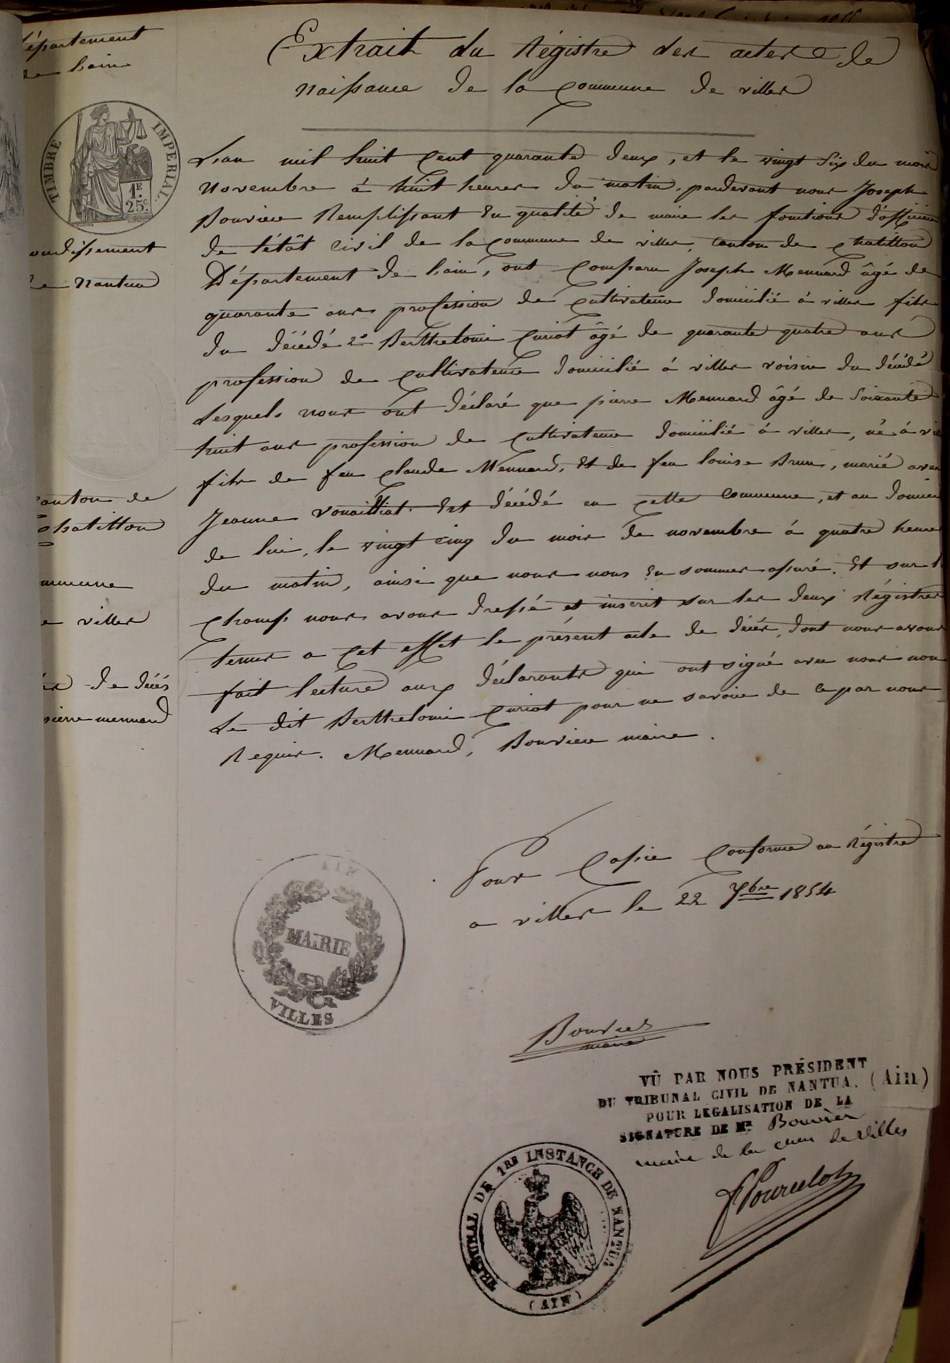 Département
de l'ain
Extrait du Régistre des actes de
naissance de la Commune de villes
TIMBRE IMPERIAL
1F
25c
L'an mil huit Cent quarante deux, et le vingt Six du mois
novembre à huit heures du matin, pardevant nous Joseph
Bouvier Remplissant En qualité de maire les fonctions d'officier
de l'état Civil de la Commune de villes, canton de Chatillon
Département de l'ain, ont Comparu Joseph Mennard âgé de
quarante ans profession de Cultivateur domicilié à villes fils
du décédé 2° Berthelomi Curiot âgé de quarante quatre ans
profession de Cultivateur domicilié à villes voisin du décédé
Lesquels nous ont déclaré que pierre Mennard âgé de Soixante
huit ans profession de Cultivateur domicilié à villes, né à
fils de feu Claude Mennard, Et de feu louise Brun, marié avec
Jeanne Est décédé en Cette Commune, et au domicile
de lui, le vingt cinq du mois de novembre à quatre heures
du matin, ainsi que nous nous En sommes assuré. Et sur le
Champ nous avons dressé et inscrit sur les deux Régistres
tenus a Cet effet le présent acte de décès, dont nous avons
fait lecture aux déclarants qui ont signé avec nous non
Le dit Berthelomi Curiot pour ne savoir de Ce par nous
Requis. Mennard, Bouvier maire.
arrondissement
de Nantua
Canton de
Chatillon
Commune
de villes
de décès
pierre mennard
Pour Copie Conforme au Régistre
a villes le 22 7bre 1854
AIN
MAIRIE
VILLES
Bouvier
maire
VÛ PAR NOUS PRÉSIDENT
DU TRIBUNAL CIVIL DE NANTUA. (Ain)
POUR LEGALISATION DE LA
SIGNATURE DE Mr. Bouvier
maire de la Cne de Villes
TRIBUNAL DE 1RE INSTANCE DE NANTUA
(AIN)